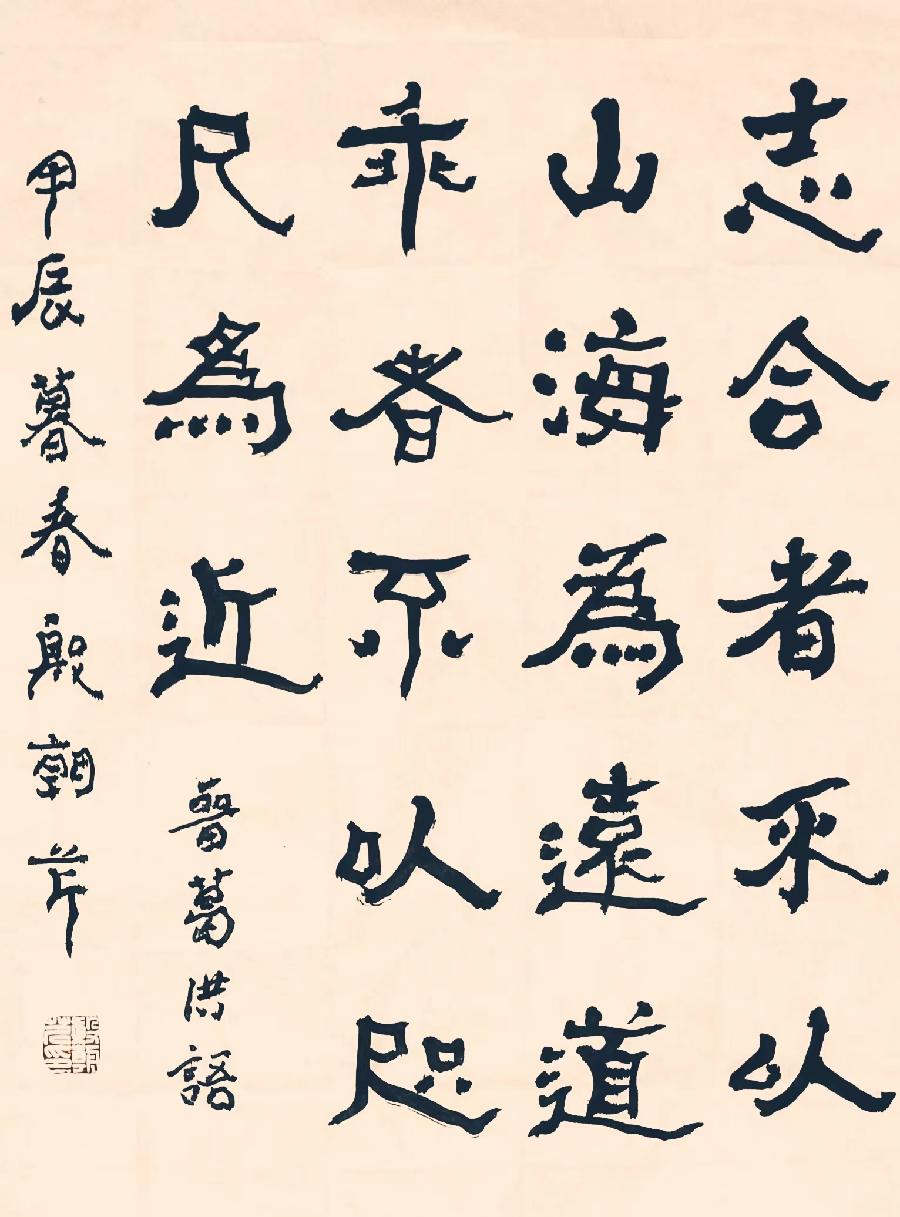 志合者不以
山海為遠道
乖者不以咫
尺為近
晉葛洪語
甲辰暮春殷朝芹